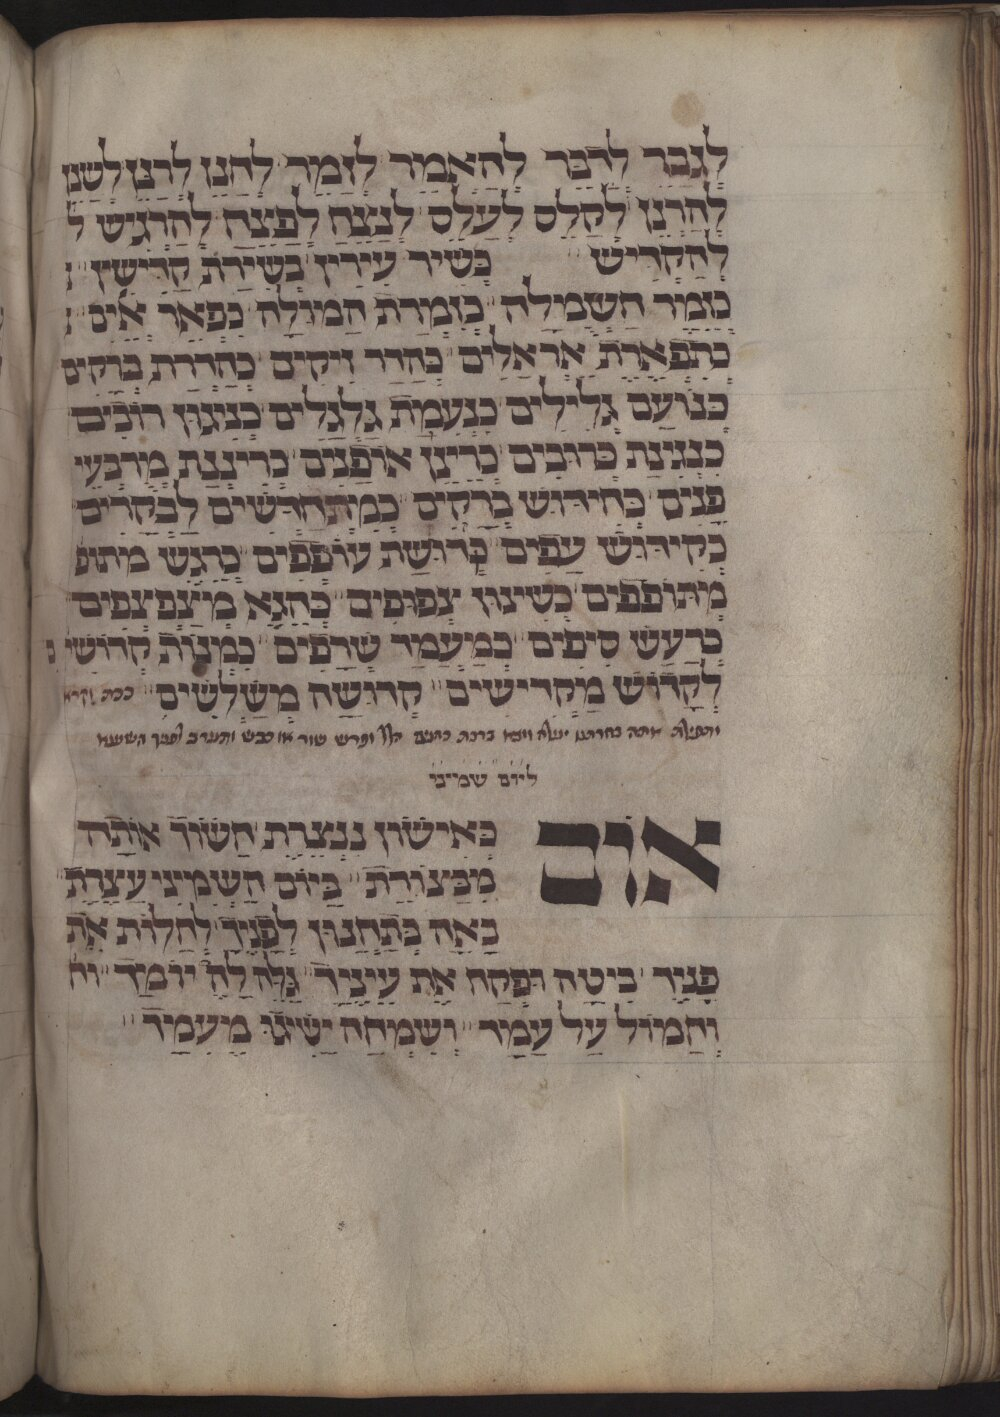 לְגַבֵר לְדַבֵּר לְהַאֲמֵר לְזַמֵר לְחַנֵן לְרַנֵן לְשַׁנֵן
לְהַרְנֵן לְקַלֵס לְעַלֵס לְנַצֵחַ לְפַצֵחַ לְהַרְגִישׁ ל
לְהַקְדִישׁ כְּשִׁיר עִירִין כְּשִׁירַת קַדִישִׁין
כְּזֶמֶר חַשְׁמַלָה כְּזִמְרַת הַמוּלָה כִּפְאֵר אִיִם
כְּתִפְאֶרֶת אֶרְאֶלִים כַּהֲדַר זִיקִים כְּהַדְרַת בְּרָקִים
כְּנוֹעַם גְלִילִים כִּנְעִימַת גַלְגַלִים כְּנִיגוּן רוֹבִים
כִּנְגִינַת כְּרוּבִים כְּרִינוּן אוֹפַנִים כְּרִינְנַת מְרֻבְּעֵי
פָנִים כְּחִידוּשׁ בְּרָקִים כְּמִתְחַדְשִׁים לַבְּקָרִים
כְּקִידוּשׁ עָפִים כִּקְדוּשַׁת עוֹפְפִים כְּרֶגֶשׁ מתופ
מְתוֹפְפִים כְּשִׁינוּן צְפוּפִים כְּהֶגֶא מְצַפְצְפִים
כְּרַעַשׁ סִיפִּים כְּמַעֲמַד שְׂרָפִים כִּמְנוֹת קְדוֹשִׁי
לְקָדוֹשׁ מַקְדִישִׁים קְדוּשָׁה מְשַׁלְשִׁים ככת׳ וקרא
ליום שמיני
אוֹם כְּאִישׁוֹן נִנְצֶרֶת חֲשׂוֹךְ אוֹתָהּ
מִבְּצוֹרֶת בַּיוֹם הַשְׁמִינִי עֲצֶרֶת
בָאָה כְּתַחֲנוּן לְפָנֶיךָ לְחַלוֹת אֶת
פָנֶיךָ בִּיטָה וּפְקַח אֶת עֵינֶיךָ גַלֵה לָהּ יוֹמֶךָ וח
וַחֲמוֹל עַל עַמֶךָ וְשִׂמְחָה יַשִׂיגוּ מֵעִמֶךָ